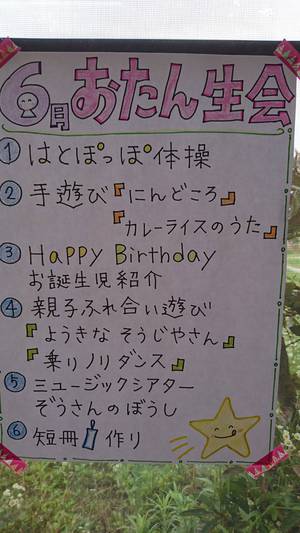 6月おたん生会
① はとぽっぽ体操
② 手遊び『にんどころ』
『カレーライスのうた』
③ HAPPY Birthday
お誕生児紹介
④ 親子ふれ合い遊び
『ようきな そうじやさん』
『乗りノリダンス』
⑤ ミュージックシアター
ぞうさんのぼうし
⑥ 短冊作り